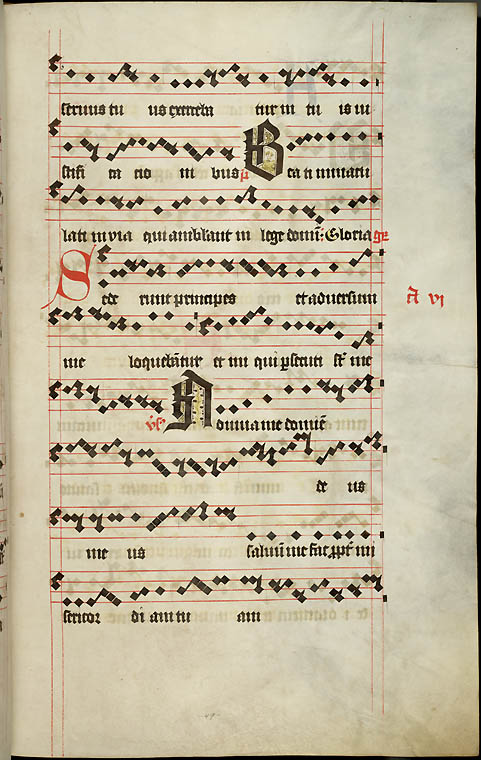 seruus tu us exerceba tur in tu is iu
stifi ca cio ni bus p̄ Be a ti inmacu
lati in via qui ambulant in lege domi: Gloria ge
Sede runt principes et aduersum cā vi
me loquebātur et ini qui persecuti st̄ me
v̄s Adiuua me domīe
de us
me us saluū me fac ꝓpt̄ mi
sericor di am tu am